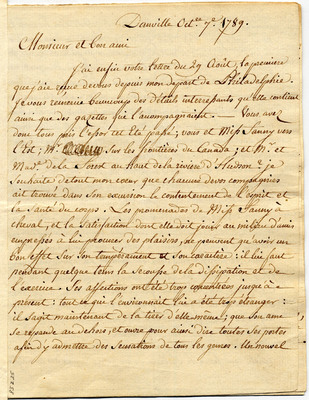 Denville Oct.re 7.e 1789.
Monsieur et bon ami
J'ai enfin votre lettre du 29 Août, la premiere
que j'aie reçue de vous depuis mon depart de Philadelphie.
Je vous remercie beaucoup des détails interressants qu'elle contient
ainsi que des gazettes qui l'accompagnaient. — Vous avez
donc tous pris l'essor cet été passé; vous et Miss Fanny vers
l'Est; M.r sur les frontières du Canada; et M.r et
Mad.e de la Forest au Haut de la riviere d'Hudson: je
souhaite de tout mon coeur que chacune de vos compagnies
ait trouvé dans son excursion le contentement de l'esprit et
la santé du corps. Les promenades de Miss Fanny à
cheval, et la satisfaction dont elle doit jouir au milieu d'amis
empressés à lui procurer des plaisirs, ne peuvent qu'avoir un
bon effet sur son tempérament et son caractere: il lui faut
pendant quelque tems la secousse de la dissipation et de
l'exercice. Ses affections ont été trop concentrées jusque à
present: tout ce qui l'environnait lui a été trop étranger:
il s'agit maintenant de la tirer d'elle même; que son ame
se repande au dehors, et ouvre pour ainsi dire toutes ses portes
afin d'y admettre des sensations de tous les genres. Un nouvel